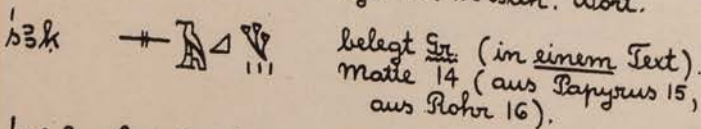 Wort.
śꜣḳ belegt Gr. (in einem Text).
Matte 14 (aus Papyrus 15,
aus Rohr 16).